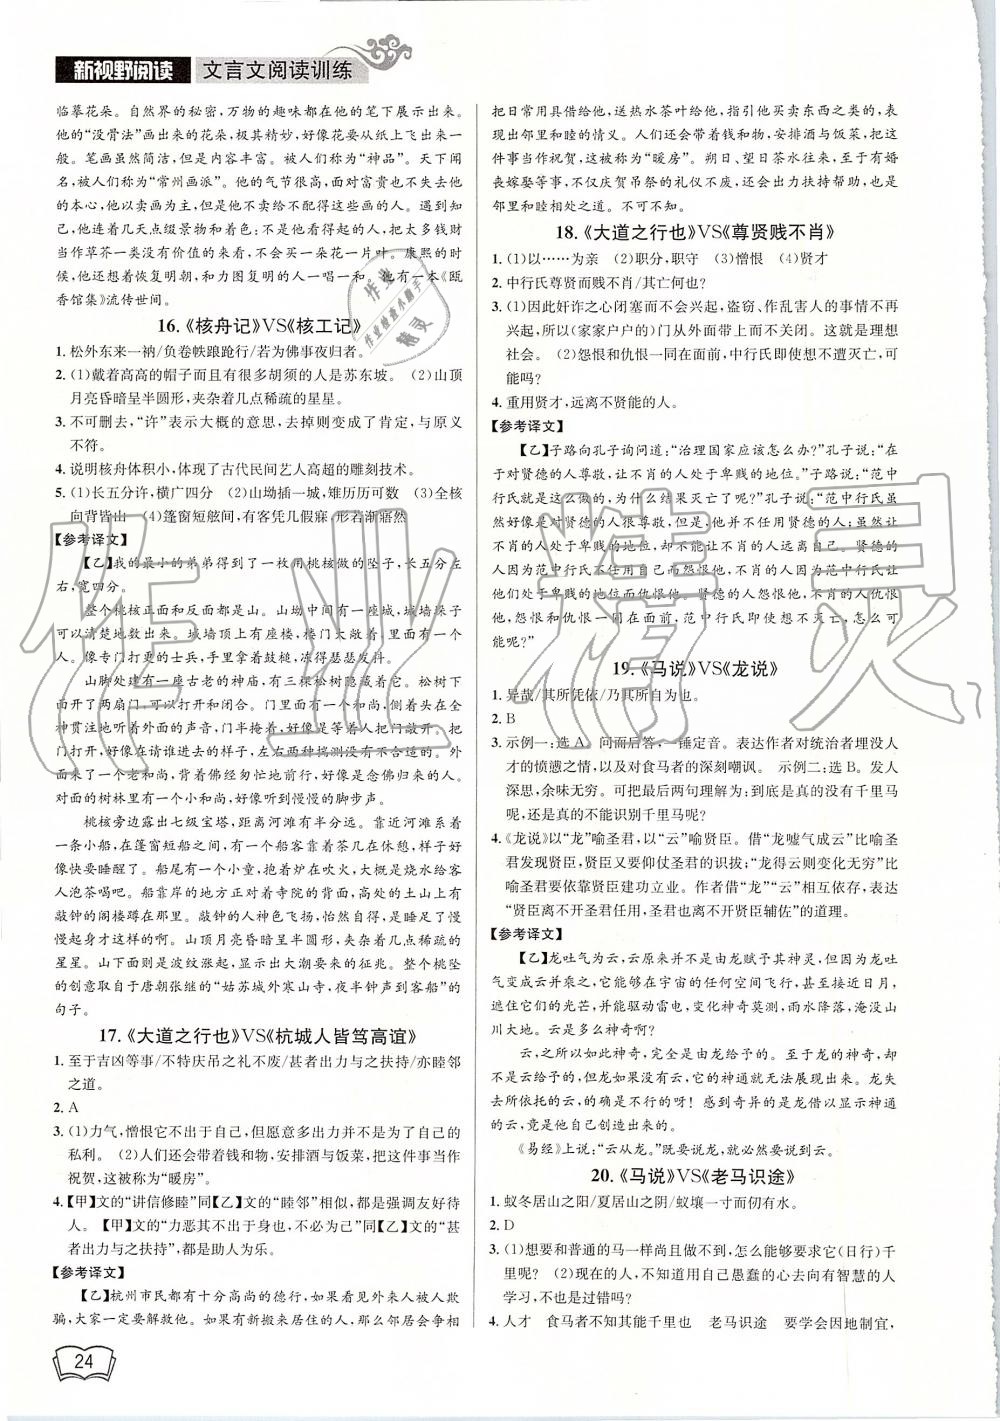 新视野阅读 文言文阅读训练
临摹花朵。自然界的秘密,万物的趣味都在他的笔下展示出来。
他的“没骨法”画出来的花朵,极其精妙,好像花要从纸上飞舞一
般。笔画虽然简洁,但是内容丰富。被人们称为“神品”。天下闻
名,被人们称为“常州画派”。他的气节很高,面对富贵也不失去他
的本心,他以卖画为主,但是他不卖给不配得到这些画的人。遇到知
己,他会连着几天点缀景物和着色;假如他看得起的人不高兴,即
使给百金看作草芥一类没有价值的东西
时候,他还想恢复明朝,和力图复明的人一起吟诗。他有一本《瓯
香馆集》流传世间。
16.《核舟记》VS《核工记》
1. 松外东来一衲/负卷帙踉跄行/若为佛事夜归者。
2. (1)戴着高高的帽子而且有很多胡须的人是苏东坡。 (2)山顶
月亮昏暗呈半圆形,夹杂着几点稀疏的星星。
3. 不可删去,“许”表示大概的意思,去掉则变成了肯定,与原义
不符。
4. 说明核舟体积小,体现了古代民间艺人高超的雕刻技术。
5. (1)长五分许,横广四分 (2)山坳插一城,雉历历可数 (3)全核
向背皆山 (4)篷窗短舷间,有客凭几假寐 形若渐寤然
【参考译文】
【乙】我的最小的弟弟得到了一枚用桃核做的坠子,长五分左
右,宽四分。
整个桃核正面和反面都是山。山坳中间有一座城,城墙垛子
可以清楚地数出来。城墙顶上有座楼,楼门大大敞开,里面有一个
人。像专门打更的士兵,手里拿着鼓槌,冻得瑟瑟发抖。
山脚处建有一座古老的神庙,有三棵松树隐藏着它。松树下
面开了两扇门,可以打开和关闭。门里面有一个和尚,侧着头在全
神贯注地听外面的声音,门半掩着,好像是等着人把门敲开。门
打开,好像在请谁进去的样子,左右两种揣测没有不合适的。外
面来了一个东边的和尚,背着佛经匆忙地前行,好像刚做完佛事归来。
对面的树林里有一个小和尚,好像听到慢慢的脚步声。
桃核旁边露出七级宝塔,距离河滩有半分远。靠近河滩系着
一条小船,在篷窗短船之间,有一个客人靠着茶几在休息,样子好像
快要睡醒了。船尾有一个小童,抱着炉在吹火,大概是烧水给客
人泡茶喝吧。船靠岸的地方正对着寺院的背面,高处的土山上有
敲钟的阁楼蹲在那里。敲钟的人神色飞扬,怡然自得,是睡足了慢
慢起身才这样的啊。山顶月亮昏暗呈半圆形,夹杂着几点稀疏的
星星。山下面则是波纹涨起,显示出大潮要来的征兆。桃核坠
的创意取自于唐朝张继的“姑苏城外寒山寺,夜半钟声到客船”的
句子。
17.《大道之行也》VS《杭城人皆笃高谊》
1. 至于吉凶等事/不特庆吊之礼不废/甚者出力与之扶持/亦睦邻
之道。
2. A
3. (1)力气,憎恨它不出于自己,但愿意多出力并不是为了自己的
私利。 (2)人们还会带着钱和物,安排酒与饭菜,把这件当作
祝贺,这被称为“暖房”。
4. 【甲】文的“讲信修睦”同【乙】文的“睦邻”相似,都强调友好待
人。【甲】文的“力恶其不出于身也,不必为己”同【乙】文的“甚
者出力与之扶持”,都是助人为乐。
【参考译文】
【乙】杭州市民都有十分高尚的德行,如果看见外来人被人欺
骗,大家一定要解救他。如果有新搬来居住的人,那么邻居会争相
24
把日常用具借给他,送热水茶叶给他,指引他买卖东西之类的,表
现出邻里和睦的情义。人们还会带着钱和物,安排酒与饭菜,把这
件事当作祝贺,这被称为“暖房”。朔日、望日茶水往来,至于有婚
丧嫁娶等事,不仅庆贺吊祭的礼仪不废,还会出力扶持帮助,也是
邻里和睦相处之道。不可不知。
18.《大道之行也》VS《尊贤贱不肖》
1. (1)以……为亲 (2)职分,职守 (3)憎恨 (4)贤才
2. 中行氏尊贤而贱不肖/其亡何也?
3. (1)因此奸诈之心闭塞而不会兴起,盗窃、作乱害人的事情不再
兴起。所以(家家户户的)门从外面带上而不关闭。这就是理想
社会。 (2)怨恨和仇恨一同在面前,中行氏即使想不遭灭亡,可
能吗?
4. 重用贤才,远离不贤能的人。
【参考译文】
【乙】子路向孔子询问道:“治理国家应该怎么办?”孔子说:“在
于对贤德的人尊敬,让不肖的人处于卑贱的地位。”子路说:“范
中行氏就是这样做的,为什么结果灭亡了呢?”孔子说:“范中行氏虽
然好像是对贤德的人很尊敬,但是,他并不任用贤德的人;虽然让
不肖的人处于卑贱的地位,却不能让不肖的人远离自己。贤德的
人因为知道他不任用自己而怨恨他,不肖的人因为知道他让自己
处于卑贱的地位而仇恨他。贤德的人怨恨他,不肖的人仇恨
他,怨恨和仇恨一同在面前,范中行氏即使想不灭亡,怎么可
能呢?”
19.《马说》VS《龙说》
1. 异哉/其所凭依/乃其所自为也。
2. B
3. 示例一:选 A。问而后答,一锤定音。表达作者对统治者埋没人
才的愤懑之情,以及对食马者的深刻嘲讽。 示例二:选 B。发人
深思,余味无穷。可把最后两句理解为:到底是真的没有千里马
呢,还是真的不能识别千里马呢?
4. 《龙说》以“龙”喻圣君,以“云”喻贤臣。借“龙嘘气成云”比喻圣
君发现贤臣,贤臣又要仰仗圣君的识拔;“龙得云则变化无穷”比
喻圣君要依靠贤臣建功立业。作者借“龙”“云”相互依存,表达
“贤臣离不开圣君任用,圣君也离不开贤臣辅佐”的道理。
【参考译文】
【乙】龙吐气为云,云原来并不是由龙赋予其神灵。但因为龙吐
气变成云并乘之,能在宇宙中的任何空间飞行,甚至接近日月,
遮住它们的光,并能驱动雷电,变化神奇莫测,雨水降落,淹没山
川大地。云是多么神奇啊?
云,之所以如此神奇,完全是由龙给予的。至于龙的神奇,却
不是云给予的,但是没有云,它的神通就无法展现出来。龙失
去所依托的云,的确是不行的呀!感到奇异的是龙借以显示神通
的云,竟是他自己创造出来的。
《易经》上说:“云从龙。”既要说龙,就必然受到云。
20.《马说》VS《老马识途》
1. 蚁冬居山之阳/夏居山之阴/蚁壤一寸而仞有水。
2. D
3. (1)想要和普通的马一样尚且做不到,怎么能要求它(日行)千
里呢? (2)现在的人,不知道用自己愚蠢的心去向有智慧的人
学习,不也是过错吗?
4. 人才 食马者不知其能千里也 老马识途 要学会因地制宜,